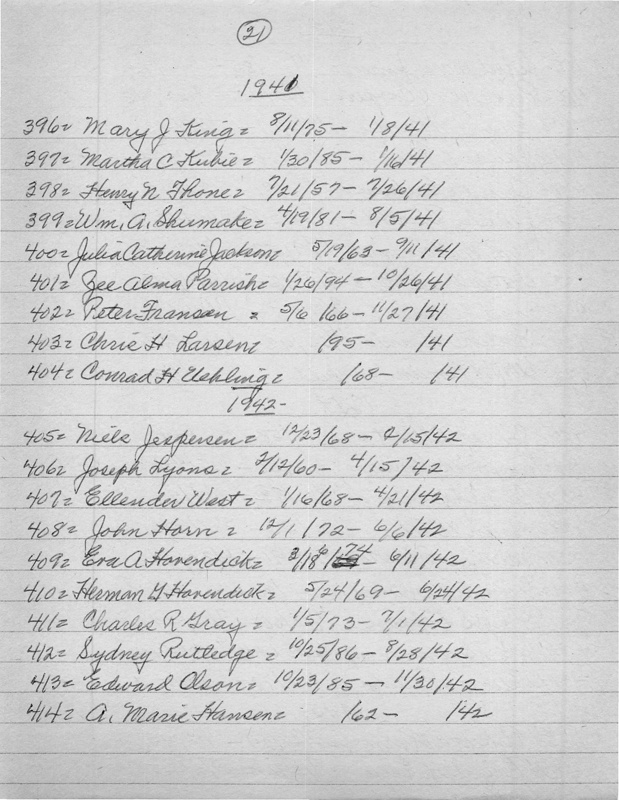 21
1941
396= Mary J King= 8/11/75- 1/8/41
397= Martha C Kubie= 1/30/85- 1/16/41
398= Henry N Thone= 7/21/57- 7/26/41
399= Wm. A. Shumake= 4/19/81- 8/5/41
400= Julia Catherine Jackson= 5/19/63- 9/11/41
401= Zee Alma Parrish= 1/26/94- 10/26/41
402= Peter Franson = 5/6/66- 11/27/41
403= Chris H Larsen= /95- /41
404= Conrad H Uehling= /68- /41
1942-
405= Niels Jespersen= 12/23/68- 2/15/42
406= Joseph Lyons= 2/12/60- 4/15/42
407= Ellender West= 1/16/68- 4/21/42
408= John Horn = 12/1/72- 6/6/42
409= Eva A Havendick= 3/18/74- 6/11/42
410= Herman G Havendick= 5/24/69- 6/24/42
411= Charles R Gray = 1/5/73- 7/1/42
412= Sydney Rutledge = 10/25/86- 8/28/42
413= Edward Olson= 10/23/85- 11/30/42
414= A. Marie Hansen= /62- /42